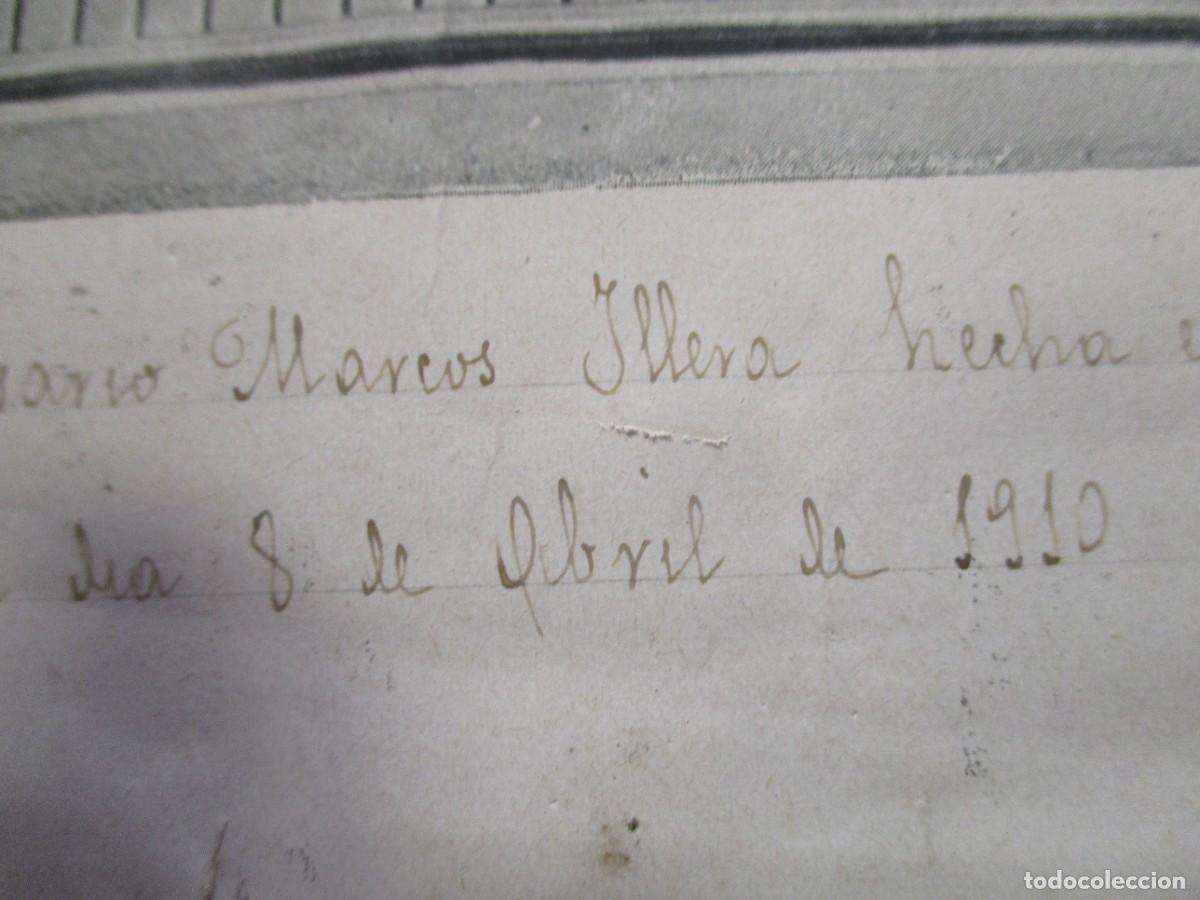 Marcos Illera hecha
dia 8 de Abril de 1910
todocoleccion